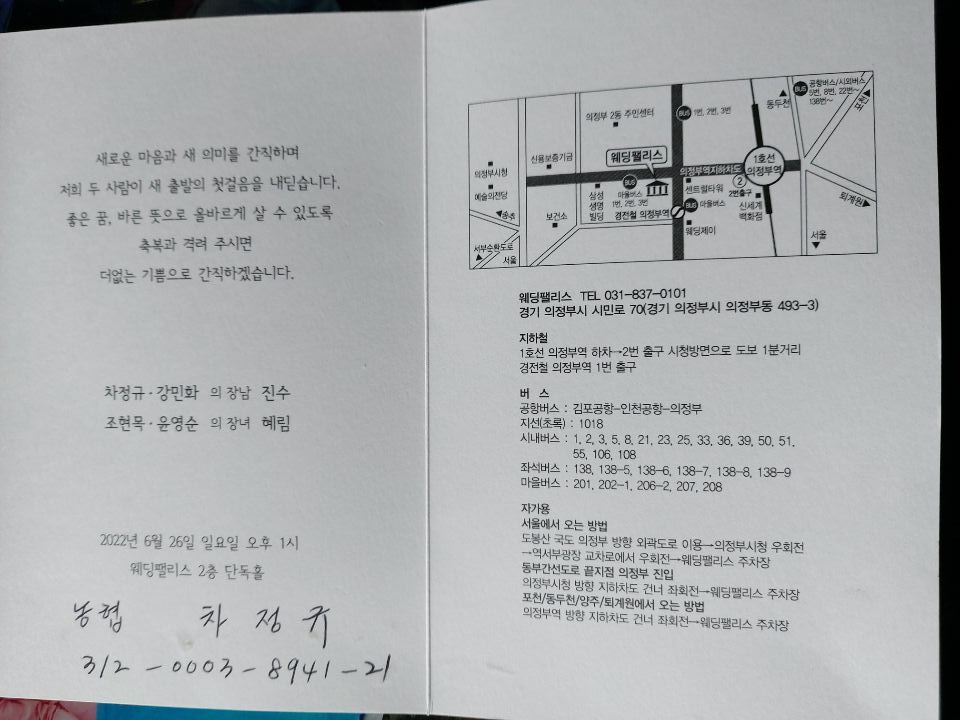 새로운 마음과 새 의미를 간직하며
저희 두 사람이 새 출발의 첫걸음을 내딛습니다.
좋은 꿈, 바른 뜻으로 올바르게 살 수 있도록
축복과 격려 주시면
더없는 기쁨으로 간직하겠습니다.
차정규·강민화 의 장남 진수
조현목·윤영순 의 장녀 혜림
2022년 6월 26일 일요일 오후 1시
웨딩팰리스 2층 단독홀
농협 차정규
312-0003-8941-21
공항버스/시외버스
BUS 5번, 8번, 22번~
138번~
포천
동두천
의정부 2동 주민센터
BUS 1번, 2번, 3번
신용보증기금
웨딩팰리스
1호선
의정부역
의정부역지하차도
의정부시청
예술의전당
삼성
생명
빌딩
BUS
마을버스
1번, 2번, 3번
센트럴타워
2
2번출구
퇴계원
보건소
경전철 의정부역
BUS 마을버스
신세계
백화점
웨딩제이
서부순환도로
서울
서울
웨딩팰리스 TEL 031-837-0101
경기 의정부시 시민로 70(경기 의정부시 의정부동 493-3)
지하철
1호선 의정부역 하차→2번 출구 시청방면으로 도보 1분거리
경전철 의정부역 1번 출구
버 스
공항버스 : 김포공항-인천공항-의정부
지선(초록) : 1018
시내버스 : 1, 2, 3, 5, 8, 21, 23, 25, 33, 36, 39, 50, 51,
55, 106, 108
좌석버스 : 138, 138-5, 138-6, 138-7, 138-8, 138-9
마을버스 : 201, 202-1, 206-2, 207, 208
자가용
서울에서 오는 방법
도봉산 국도 의정부 방향 외곽도로 이용→의정부시청 우회전
→역서부광장 교차로에서 우회전→웨딩팰리스 주차장
동부간선도로 끝지점 의정부 진입
의정부시청 방향 지하차도 건너 좌회전→웨딩팰리스 주차장
포천/동두천/양주/퇴계원에서 오는 방법
의정부역 방향 지하차도 건너 좌회전→웨딩팰리스 주차장